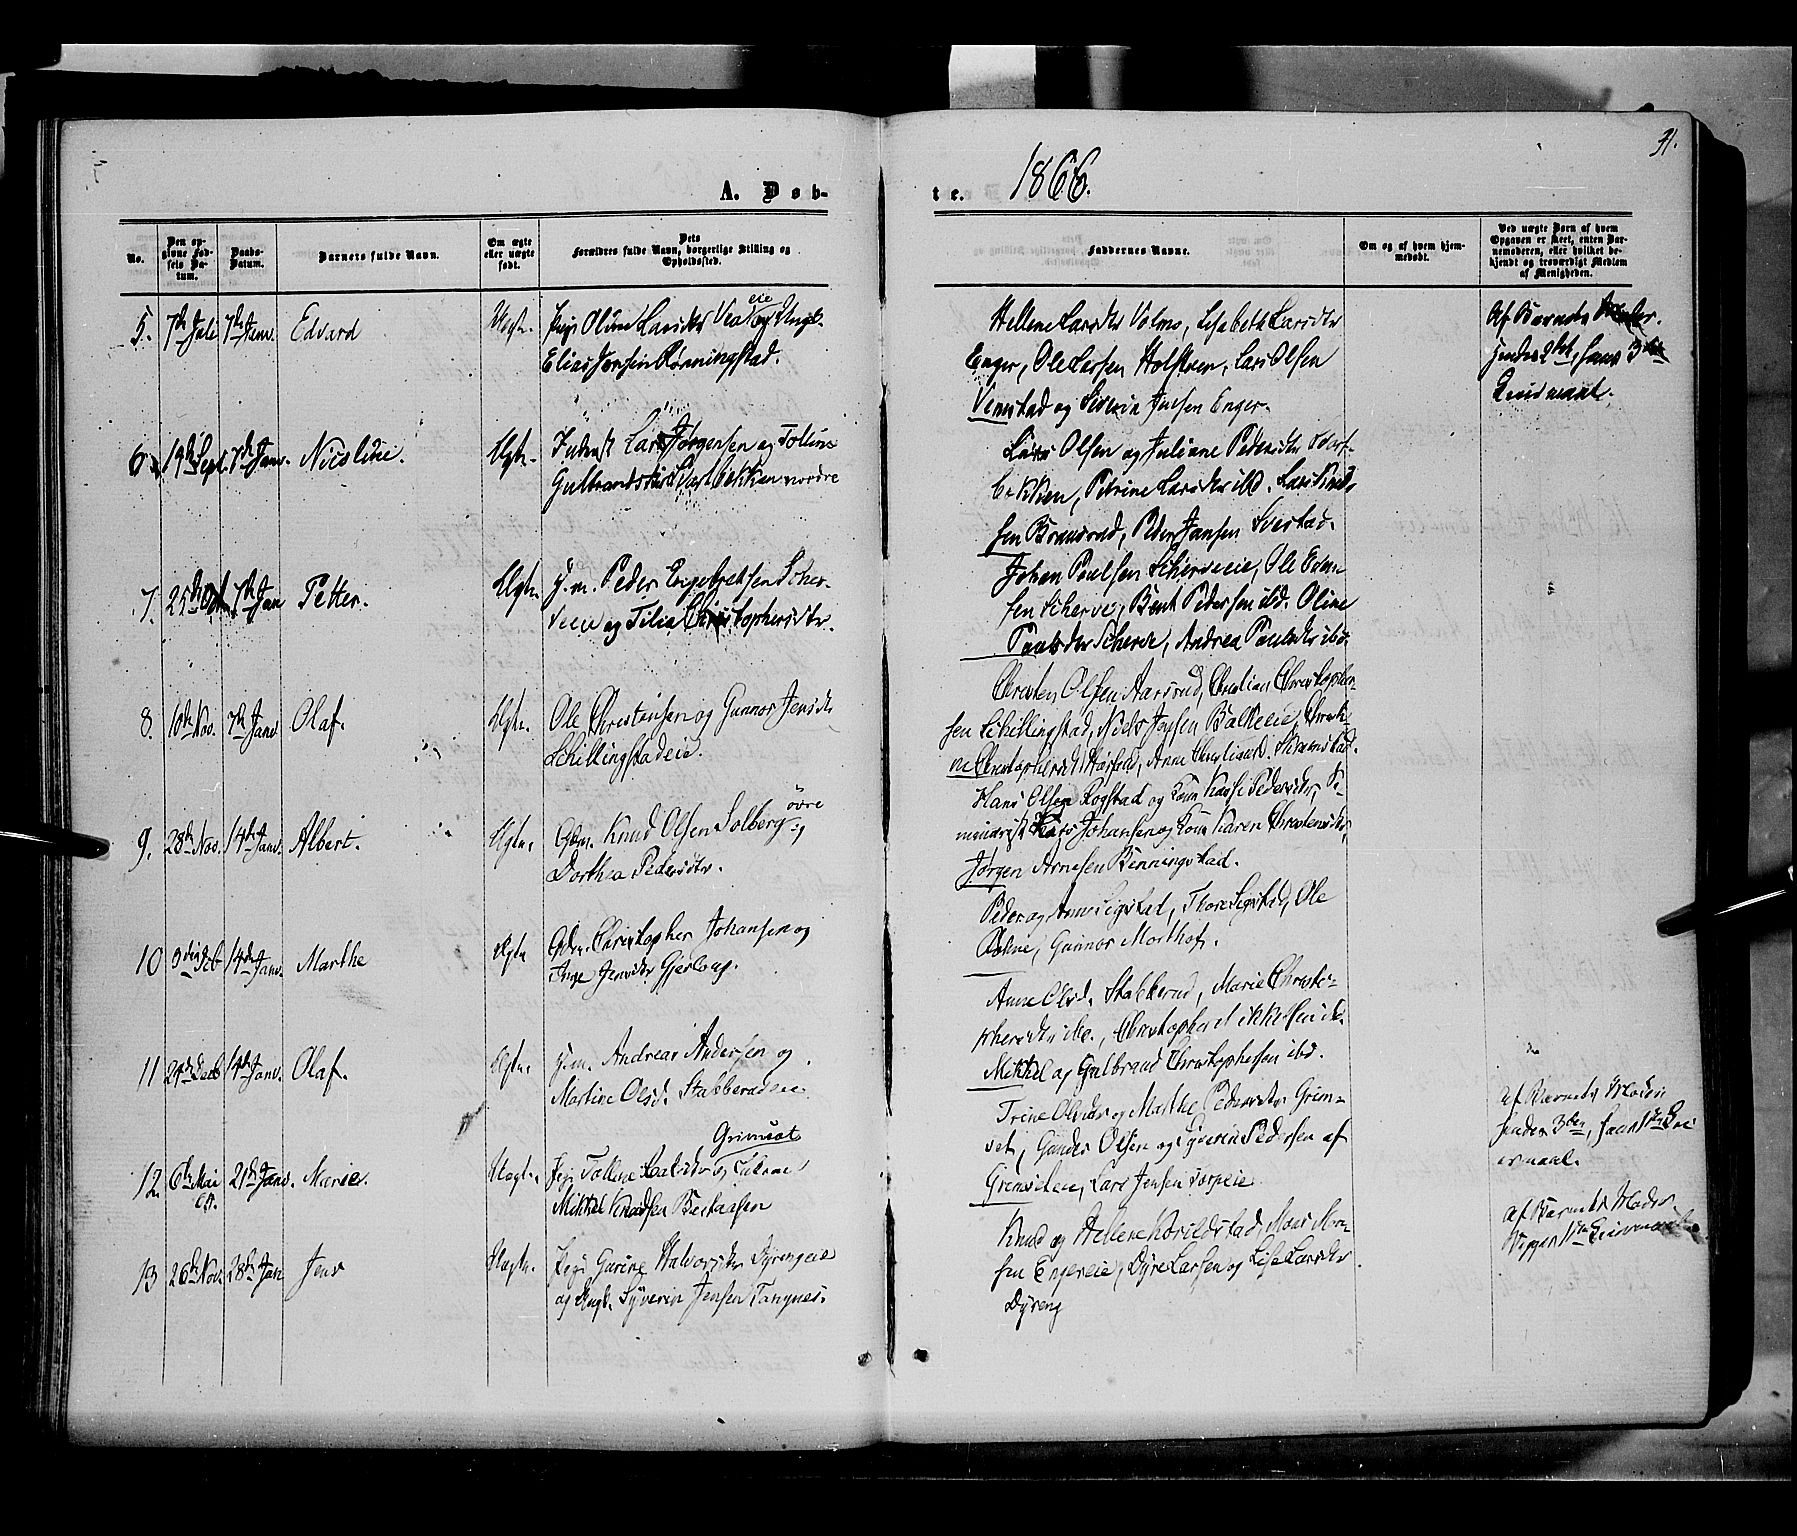 31.
1866.
A. Døb-
te.
No.
Den op-
givne Fød-
sels Da-
tum.
Daabs-
Datum.
Barnets fulde Navn.
Om ægte
eller uægte
født.
Dets
Forældres fulde Navn, borgerlige Stilling og
Opholdssted.
Faddernes Navne.
Om og af hvem hjem-
medøbt.
Ved uægte Børn af hvem
Opgaven er skeet, enten Bar-
nemoderen, eller hvilket be-
kjendt og troværdigt Medlem
af Menigheden.
5. 7de Juli 7de Janv. Edvard Uægte. Pige Oline Larsdtr eie og Ungk.
Elias Jensen Rønningstad.
Hellene Larsdtr Volmo, Lisabeth Larsdtr
Enger, Ole Larsen Holstven, Lars Olsen
Vemstad og Severin Jensen Enger.
Af Barnets Moder.
hendes 2det, hans 3die
Leiermaal.
6. 19de Sept. 7de Janv. Nicoline. Ægte. Inderst Lars Jørgensen og Toline
Gulbrandsdtr Svartbekken nordre
Lars Olsen og Juliane Pedersdtr Svart-
bekken, Petrine Larsdtr ibd. Lars Knud-
sen Bransrud, Peder Jansen Svestad.
7. 25de Oct 7de Jan Petter. Ægte. J. m. Peder Engebretsen Scher-
veeie og Tilia Christophersdtr.
Johan Paulsen Scherveeie, Ole Even-
sen Scherve, Bent Pedersen ibd. Oline
Paulsdtr Scherve, Andrea Paulsdtr ibd.
8. 10de Nov. 7de Janv Olaf. Ægte. Ole Christensen og Gunnor Jensdtr
Schillingstadeie.
Christen Olsen Aasrud, Christian Christopher-
sen Schillingstad, Niels Joysen Balkeeie, Christi-
ne Christophersdtr
9. 28de Nov. 14de Janv. Albert. Ægte. Gbr. Knud Olsen Solberg øvre og
Dorthea Pedersdtr.
Hans Olsen Rogstad og Kone Kaisa Pedersdtr, Se-
minarist Lars Johansen og Kone Karen Christensdtr,
Jørgen Arnesen Benningstad.
10 3die Feb 14de Janv. Marthe Ægte Gbr. Christopher Johansen og
Inge Jensdtr Gjerlaug.
Peder og Anne Sigstad, Thore Sigstad, Ole
Gunnor Morthof.
11 24de Decb 14de Janv. Olaf. Ægte. J. m. Andreas Andersen og
Martine Olsd. Stabberudeie.
Anne Olsd. Stabberud, Marie Christo-
phersdtr ibd., Christopher Mikkelsen ib.
Mikkel og Gulbrand Christophersen ibd.
12. 6te Mai 65. 21de Janv. Marie. Uægte. Pige Tollene Larsdtr Grimset og Enkem.
Mikkel Knudsen
Trine Olsdtr og Marthe Pedersdtr Grim-
set, Gunder Olsen og Syverin Pedersen af
Grimseteie, Lars Jensen Torpeie.
af Barnets Moder
hendes 3die, hans 1ste Lei-
ermaal.
13 26de Nov. 28de Jan Jens Uægte. Pige Gurine Halvorsdtr Dyrengeie
og Ungk. Syverin Jensen Tangnes.
Knud og Hellene Korsildstad, Mons Mon-
sen Engereie, Dyre Larsen og Lise Larsdtr
Dyreng
af Barnets Moder
Begges 1ste Leiermaal.